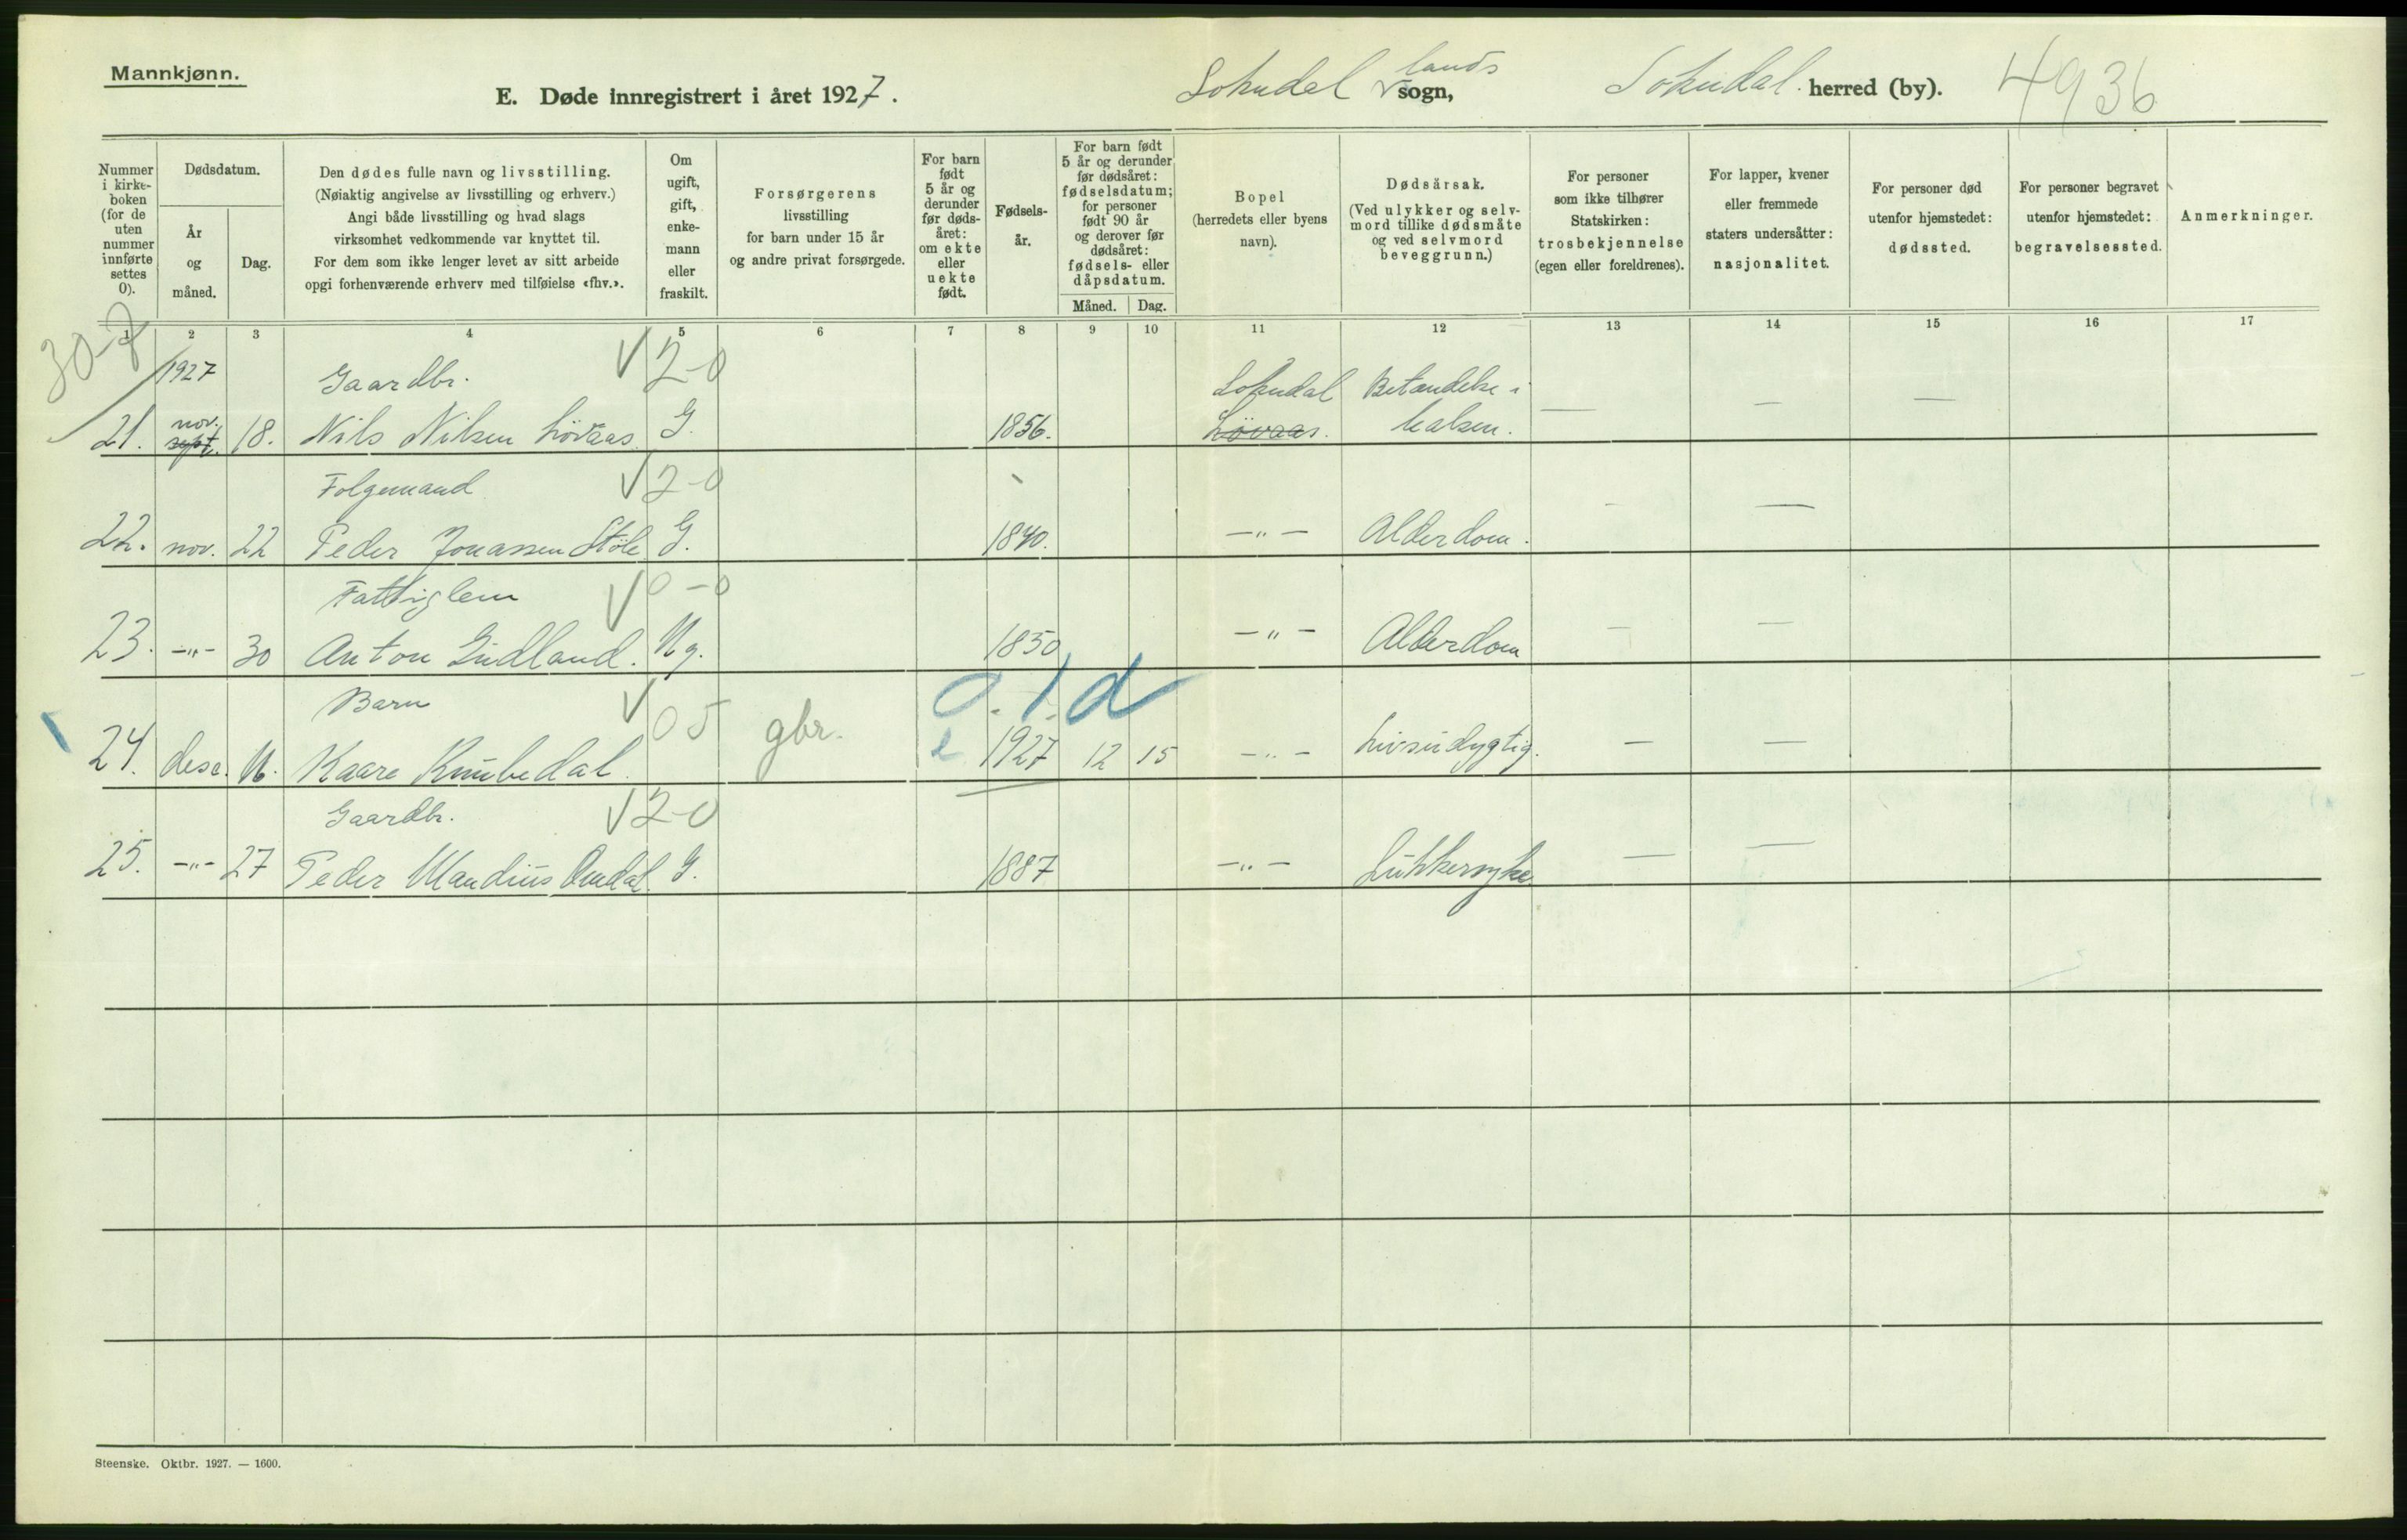 Mannkjønn.
E. Døde innregistrert i året 1927.
Sokndal lands sogn, Sokndal herred (by). 4936
Nummer i kirke-boken (for de uten nummer innførte settes 0).
Dødsdatum.
År og måned.
Dag.
Den dødes fulle navn og livsstilling.
(Nøiaktig angivelse av livsstilling og erhverv.)
Angi både livsstilling og hvad slags
virksomhet vedkommende var knyttet til.
For dem som ikke lenger levet av sitt arbeide
opgi forhenværende erhverv med tilføielse «fhv.».
Om ugift, gift, enke-mann eller fraskilt.
Forsørgerens livsstilling
for barn under 15 år
og andre privat forsørgede.
For barn født 5 år og derunder før døds-året: om ekte eller uekte født.
Fødsels-år.
For barn født 5 år og derunder før dødsåret: fødselsdatum; for personer født 90 år og derover før dødsåret: fødsels- eller dåpsdatum.
Måned. Dag.
Bopel
(herredets eller byens navn).
Dødsårsak.
(Ved ulykker og selv-mord tillike dødsmåte og ved selvmord beveggrunn.)
For personer som ikke tilhører Statskirken: trosbekjennelse (egen eller foreldrenes).
For lapper, kvener eller fremmede staters undersåtter: nasjonalitet.
For personer død utenfor hjemstedet: dødssted.
For personer begravet utenfor hjemstedet: begravelsessted.
Anmerkninger.
1 2 3 4 5 6 7 8 9 10 11 12 13 14 15 16 17
30-7
1927 Gaardbr. √ 2-0 Sokndal Betændelse i
21. nov. sept. 18. Nils Nilsen Lövaas G. 1856. Lövaas. halsen. — — —
Folgemand √ 2-0
22. nov. 22 Peder Jonassen Stöle G. 1840. —„— Alderdom. — —
Fattiglem √ 0-0
23. —„— 30 Anton Gudland. Ug. 1850 —„— Alderdom — —
Barn √ 0 5 gbr. 0. 1 d
24. des. 16. Kaare Knubedal. e 1927 12 15 —„— Livsudygtig. — —
Gaardbr. √ 2-0
25. —„— 27 Peder Mandius Omdal. G. 1887 —„— Sukkersyke — —
Steenske. Oktbr. 1927. — 1600.